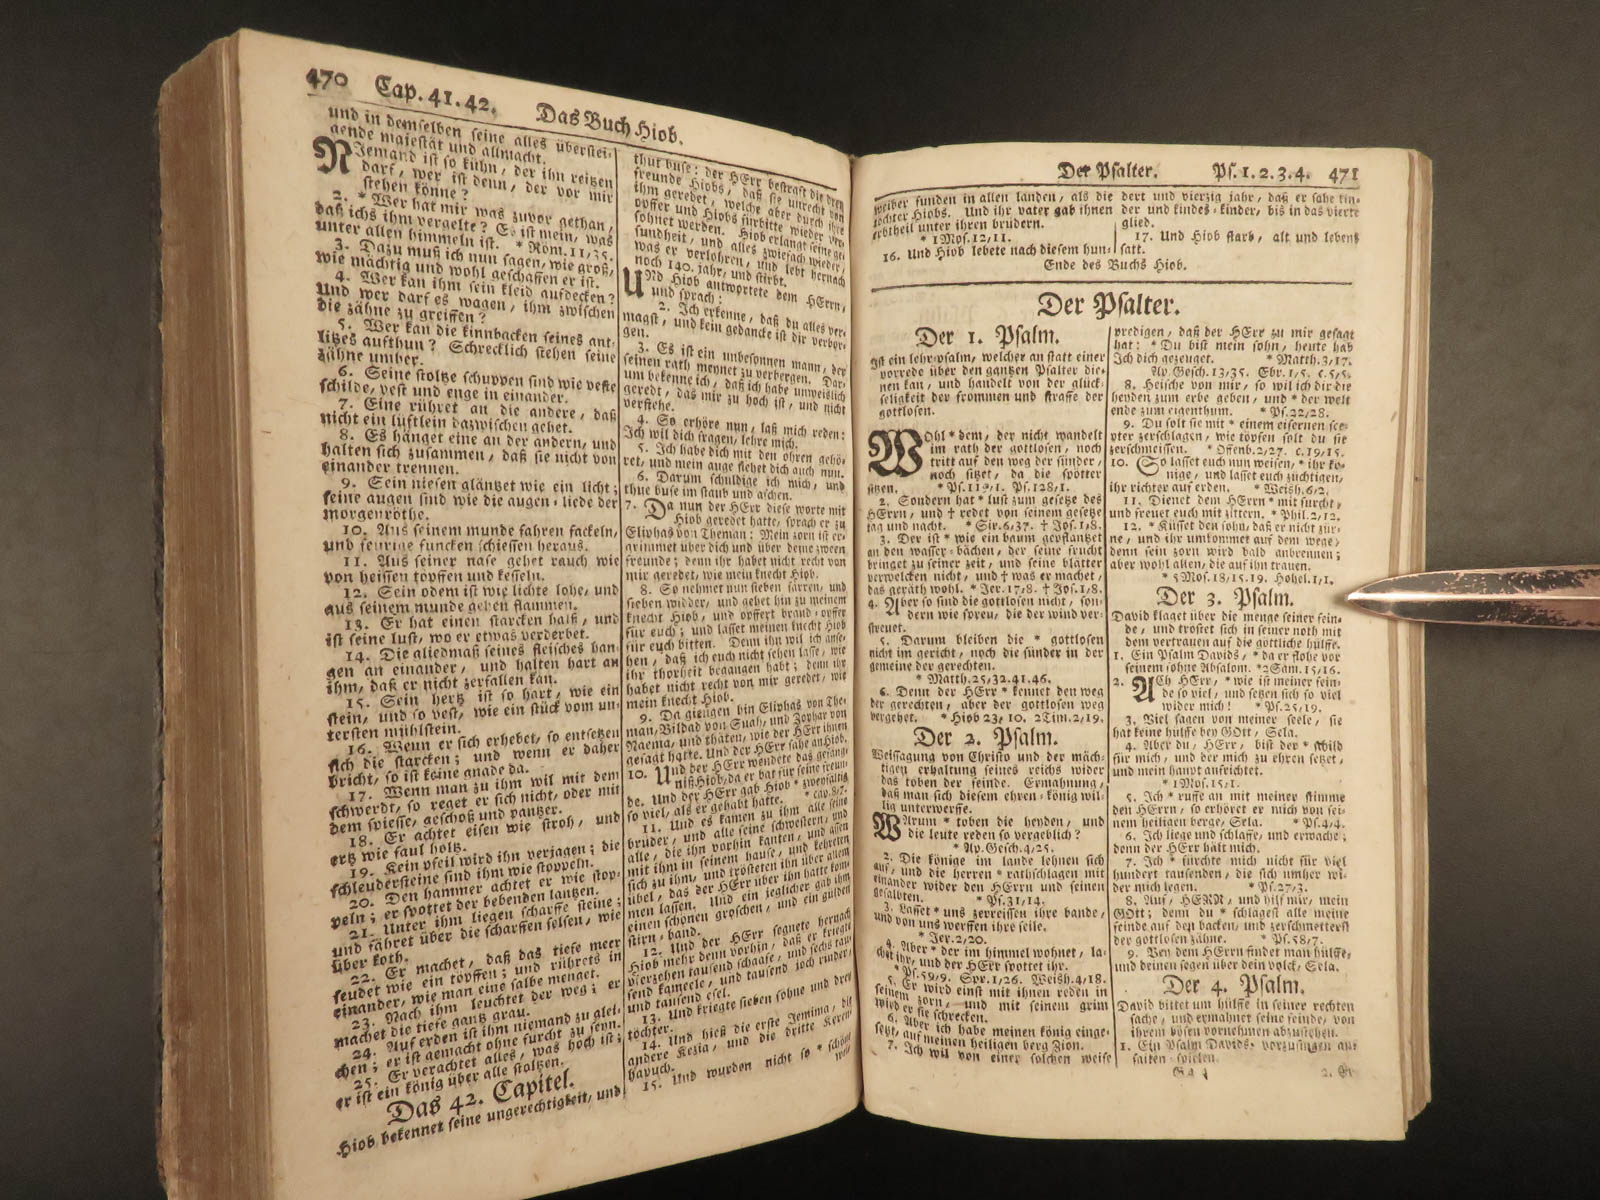 470 Cap. 41. 42. Das Buch Hiob.
und in demselben seine alles überstei-
gende majestät und allmacht.
NJemand ist so kühn, der ihn reitzen
darf, wer ist denn, der vor mir
stehen könne?
2. * Wer hat mir was zuvor gethan,
daß ichs ihm vergelte? Es ist mein, was
unter allen himmeln ist. * Röm. 11/35.
3. Dazu muß ich nun sagen, wie groß,
wie mächtig und wohl geschaffen er ist.
4. Wer kan ihm sein kleid aufdecken?
Und wer darf es wagen, ihm zwischen
die zähne zu greiffen?
5. Wer kan die kinnbacken seines ant-
litzes aufthun? Schrecklich stehen seine
zähne umher.
6. Seine stoltze schuppen sind wie veste
schilde, vest und enge in einander.
7. Eine rühret an die andere, daß
nicht ein lüftlein dazwischen gehet.
8. Es hänget eine an der andern, und
halten sich zusammen, daß sie nicht von
einander trennen.
9. Sein niesen gläntzet wie ein licht;
seine augen sind wie die augen-liede der
morgenröthe.
10. Aus seinem munde fahren fackeln,
und feurige funcken schiessen heraus.
11. Aus seiner nase gehet rauch wie
von heissen töpffen und kesseln.
12. Sein odem ist wie lichte lohe, und
aus seinem munde gehen flammen.
13. Er hat einen starcken halß, und
ist seine lust, wo er etwas verderbet.
14. Die gliedmaß seines fleisches han-
gen an einander, und halten hart an
ihm, daß er nicht zerfallen kan.
15. Sein hertz ist so hart, wie ein
stein, und so vest, wie ein stück vom un-
tersten mühlstein.
16. Wenn er sich erhebet, so entsetzen
sich die starcken; und wenn er daher
bricht, so ist keine gnade da.
17. Wenn man zu ihm wil mit dem
schwerdt, so reget er sich nicht, oder mit
dem spiesse, geschoß und pantzer.
18. Er achtet eisen wie stroh, und
ertz wie faul holtz.
19. Kein pfeil wird ihn verjagen; die
schleudersteine sind ihm wie stoppeln.
20. Den hammer achtet er wie stop-
peln; er spottet der bebenden lantzen.
21. Unter ihm liegen scharffe steine;
und fähret über die scharffen felsen, wie
über koth.
22. Er machet, daß das tiefe meer
seudet wie ein töpffen; und rührets in
einander, wie man eine salbe menget.
23. Nach ihm leuchtet der weg; er
machet die tiefe gantz grau.
24. Auf erden ist ihm niemand zu glei-
chen; er ist gemacht ohne furcht zu seyn.
25. Er verachtet alles, was hoch ist;
er ist ein könig über alle stoltzen.
Das 42. Capitel.
Hiob bekennet seine ungerechtigkeit, und
thut busse: der HErr bestraft die drey
freunde Hiobs, daß sie unrecht von
ihm geredet, welche aber durch ihre
opffer und Hiobs fürbitte wieder ver-
söhnet werden. Hiob erlangt seine ge-
sundheit, und alles zwiefach wieder,
was er verlohren, und lebt hernach
noch 140. jahr, und stirbt.
UNd Hiob antwortete dem HErrn,
und sprach:
2. Ich erkenne, daß du alles ver-
magst, und kein gedancke ist dir verbor-
gen.
3. Es ist ein unbesonnen mann, der
seinen rath meynet zu verbergen. Dar-
um bekenne ich, daß ich habe unweislich
geredt, das mir zu hoch ist, und nicht
verstehe.
4. So erhöre nun, laß mich reden:
Ich wil dich fragen, lehre mich.
5. Ich habe dich mit den ohren gehö-
ret, und mein auge siehet dich auch nun.
6. Darum schuldige ich mich, und
thue buse im staub und aschen.
7. Da nun der HErr diese worte mit
Hiob geredet hatte, sprach er zu
Eliphas von Theman: Mein zorn ist er-
grimmet über dich und über deine zween
freunde; denn ihr habet nicht recht von
mir geredet, wie mein knecht Hiob.
8. So nehmet nun sieben farren, und
sieben widder, und gehet hin zu meinem
knecht Hiob, und opffert brand-opffer
für euch; und lasset meinen knecht Hiob
für euch bitten. Denn ihn wil ich anse-
hen, daß ich euch nicht sehen lasse, wie
ihr thorheit begangen habt; denn ihr
habet nicht recht von mir geredet, wie
mein knecht Hiob.
9. Da giengen hin Eliphas von The-
man, Bildad von Suah, und Zophar von
Naema, und thäten, wie der HErr ihnen
gesagt hatte. Und der HErr sahe an Hiob.
10. Und der HErr wendete das gefäng-
niß Hiob, da er bat für seine freun-
de. Und der HErr gab Hiob * zwenfältig
so viel, als er gehabt hatte. * cap. 8/7.
11. Und es kamen zu ihm alle seine
brüder, und alle seine schwestern, und
alle, die ihn vorhin kanten, und assen
mit ihm in seinem hause, und kehreten
sich zu ihm, und trösteten ihn über allem
übel, das der HErr über ihn hatte kom-
men lassen. Und ein jeglicher gab ihm
einen schönen groschen, und ein gülden
stirn-band.
12. Und der HErr segnete hernach
Hiob mehr denn vorhin, daß er kriegte
vierzehen tausend schaafe, und sechs tau-
send kameele, und tausend joch rinder,
und tausend esel.
13. Und kriegte sieben söhne und drey
töchter.
14. Und hieß die erste Jemima, die
andere Kezia, und die dritte Keren-
hapuch.
15. Und wurden nicht so * schöne
weib
Der Psalter. Ps. 1. 2. 3. 4. 471
weiber funden in allen landen, als die
töchter Hiobs. Und ihr vater gab ihnen
erbtheil unter ihren brüdern.
* 1 Mos. 12/11.
16. Und Hiob lebete nach diesem hun-
dert und vierzig jahr, daß er sahe kin-
der und kindes-kinder, bis in das vierte
glied.
17. Und Hiob starb, alt und lebens
satt.
Ende des Buchs Hiob.
Der Psalter.
Der 1. Psalm.
Ist ein lehr-psalm, welcher an statt einer
vorrede über den gantzen Psalter die-
nen kan, und handelt von der glück-
seligkeit der frommen und straffe der
gottlosen.
WOhl * dem, der nicht wandelt
im rath der gottlosen, noch
tritt auf den weg der sünder,
noch sitzet, da die spötter
sitzen. * Ps. 119/1. Ps. 128/1.
2. Sondern hat * lust zum gesetze des
HErrn, und † redet von seinem gesetze
tag und nacht. * Sir. 6/37. † Jos. 1/8.
3. Der ist * wie ein baum gepflantzet
an den wasser-bächen, der seine frucht
bringet zu seiner zeit, und seine blätter
verwelcken nicht, und † was er machet,
das geräth wohl. * Jer. 17/8. † Jos. 1/8.
4. Aber so sind die gottlosen nicht, son-
dern wie spreu, die der wind ver-
streuet.
5. Darum bleiben die * gottlosen
nicht im gericht, noch die sünder in der
gemeine der gerechten.
* Matth. 25/32. 41. 46.
6. Denn der HErr * kennet den weg
der gerechten, aber der gottlosen weg
vergehet. * Hiob 23/10. 2 Tim. 2/19.
Der 2. Psalm.
Weissagung von Christo und der mäch-
tigen erhaltung seines reichs wider
das toben der feinde. Ermahnung,
daß man sich diesem ehren-könig wil-
lig unterwerffe.
WArum * toben die heyden, und
die leute reden so vergeblich?
* Ap. Gesch. 4/25.
2. Die könige im lande lehnen sich
auf, und die herren * rathschlagen mit
einander wider den HErrn und seinen
gesalbten. * Ps. 31/14.
3. Lasset * uns zerreissen ihre bande,
und von uns werffen ihre seile.
* Jer. 2/20.
4. Aber * der im himmel wohnet, la-
chet ihr, und der HErr spottet ihr.
* Ps. 59/9. Spr. 1/26. Weish. 4/18.
5. Er wird einst mit ihnen reden in
seinem zorn, und mit seinem grim
wird er sie schrecken.
6. Aber ich habe meinen könig einge-
setzt, auf meinen heiligen berg Zion.
7. Ich wil von einer solchen weise
predigen, daß der HErr zu mir gesagt
hat: * Du bist mein sohn, heute hab
Ich dich gezeuget. * Matth. 3/17.
Ap. Gesch. 13/35. Ebr. 1/5. c. 5/5.
8. Heische von mir, so wil ich dir die
heyden zum erbe geben, und * der welt
ende zum eigenthum. * Ps. 22/28.
9. Du solt sie mit * einem eisernen sce-
pter zerschlagen, wie töpfen solt du sie
zerschmeissen. * Offenb. 2/27. c. 19/15.
10. So lasset euch nun weisen, * ihr kö-
nige, und lasset euch züchtigen,
ihr richter auf erden. * Weish. 6/2.
11. Dienet dem HErrn * mit furcht,
und freuet euch mit zittern. * Phil. 2/12.
12. * Küsset den sohn, daß er nicht zür-
ne, und ihr umkommet auf dem wege;
denn sein zorn wird bald anbrennen;
aber wohl allen, die auf ihn trauen.
* 5 Mos. 18/15. 19. Hohel. 1/1.
Der 3. Psalm.
David klaget über die menge seiner fein-
de, und tröstet sich in seiner noth mit
dem vertrauen auf die göttliche hülffe.
1. Ein Psalm Davids, * da er flohe vor
seinem sohne Absalom. * 2 Sam. 15/16.
2. ACh HErr, * wie ist meiner fein-
de so viel, und setzen sich so viel
wider mich! * Ps. 25/19.
3. Viel sagen von meiner seele, sie
hat keine hülffe bey GOtt, Sela.
4. Aber du, HErr, bist der * schild
für mich, und der mich zu ehren setzet,
und mein haupt aufrichtet.
* 1 Mos. 15/1.
5. Ich * ruffe an mit meiner stimme
den HErrn, so erhöret er mich von sei-
nem heiligen berge, Sela. * Ps. 4/4.
6. Ich liege und schlaffe, und erwache;
denn der HErr hält mich.
7. Ich * fürchte mich nicht für viel
hundert tausenden, die sich umher wi-
der mich legen. * Ps. 27/3.
8. Auf, HERR, und hilf mir, mein
GOtt; denn du * schlägest alle meine
feinde auf den backen, und zerschmetterst
der gottlosen zähne. * Ps. 58/7.
9. Bey dem HErrn findet man hülffe,
und deinen segen über dein volck, Sela.
Der 4. Psalm.
David bittet um hülffe in seiner rechten
sache, und ermahnet seine feinde, von
ihrem bösen vornehmen abzustehen.
1. Ein Psalm Davids, vorzusingen auf
saiten-spielen.
Gg 4
2. Er